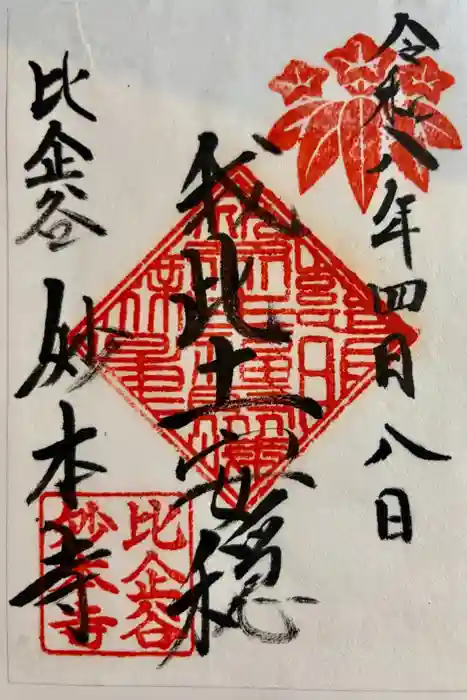 令和八年四月八日
我此土安穏
比企谷 妙本寺
比企谷
妙本寺